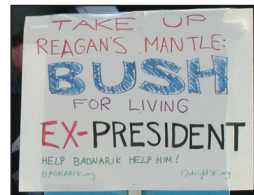 TAKE UP
REAGAN'S MANTLE:
BUSH
FOR LIVING
EX-PRESIDENT
HELP BADNARIK HELP HIM!
BADNARIK.org OutrightSF.org